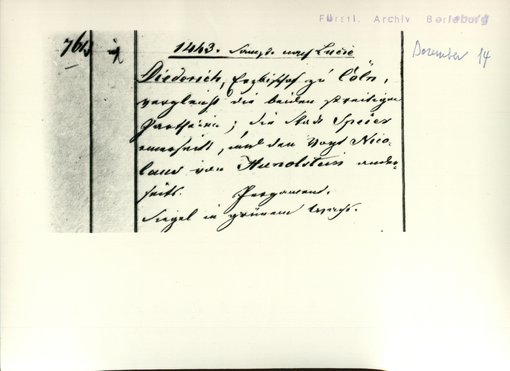 Fürstl. Archiv Berleburg
Dezember 14
1443. Samsd. nach Lucie
Diederich, Erzbischof zu Cöln,
vergleicht die beiden streitigen
Partheien; die Stadt Speier
einerseits, und den Vogt Nico-
laus von Hunolstein ander-
seits. Pergament.
Siegel in grünem Wachs.